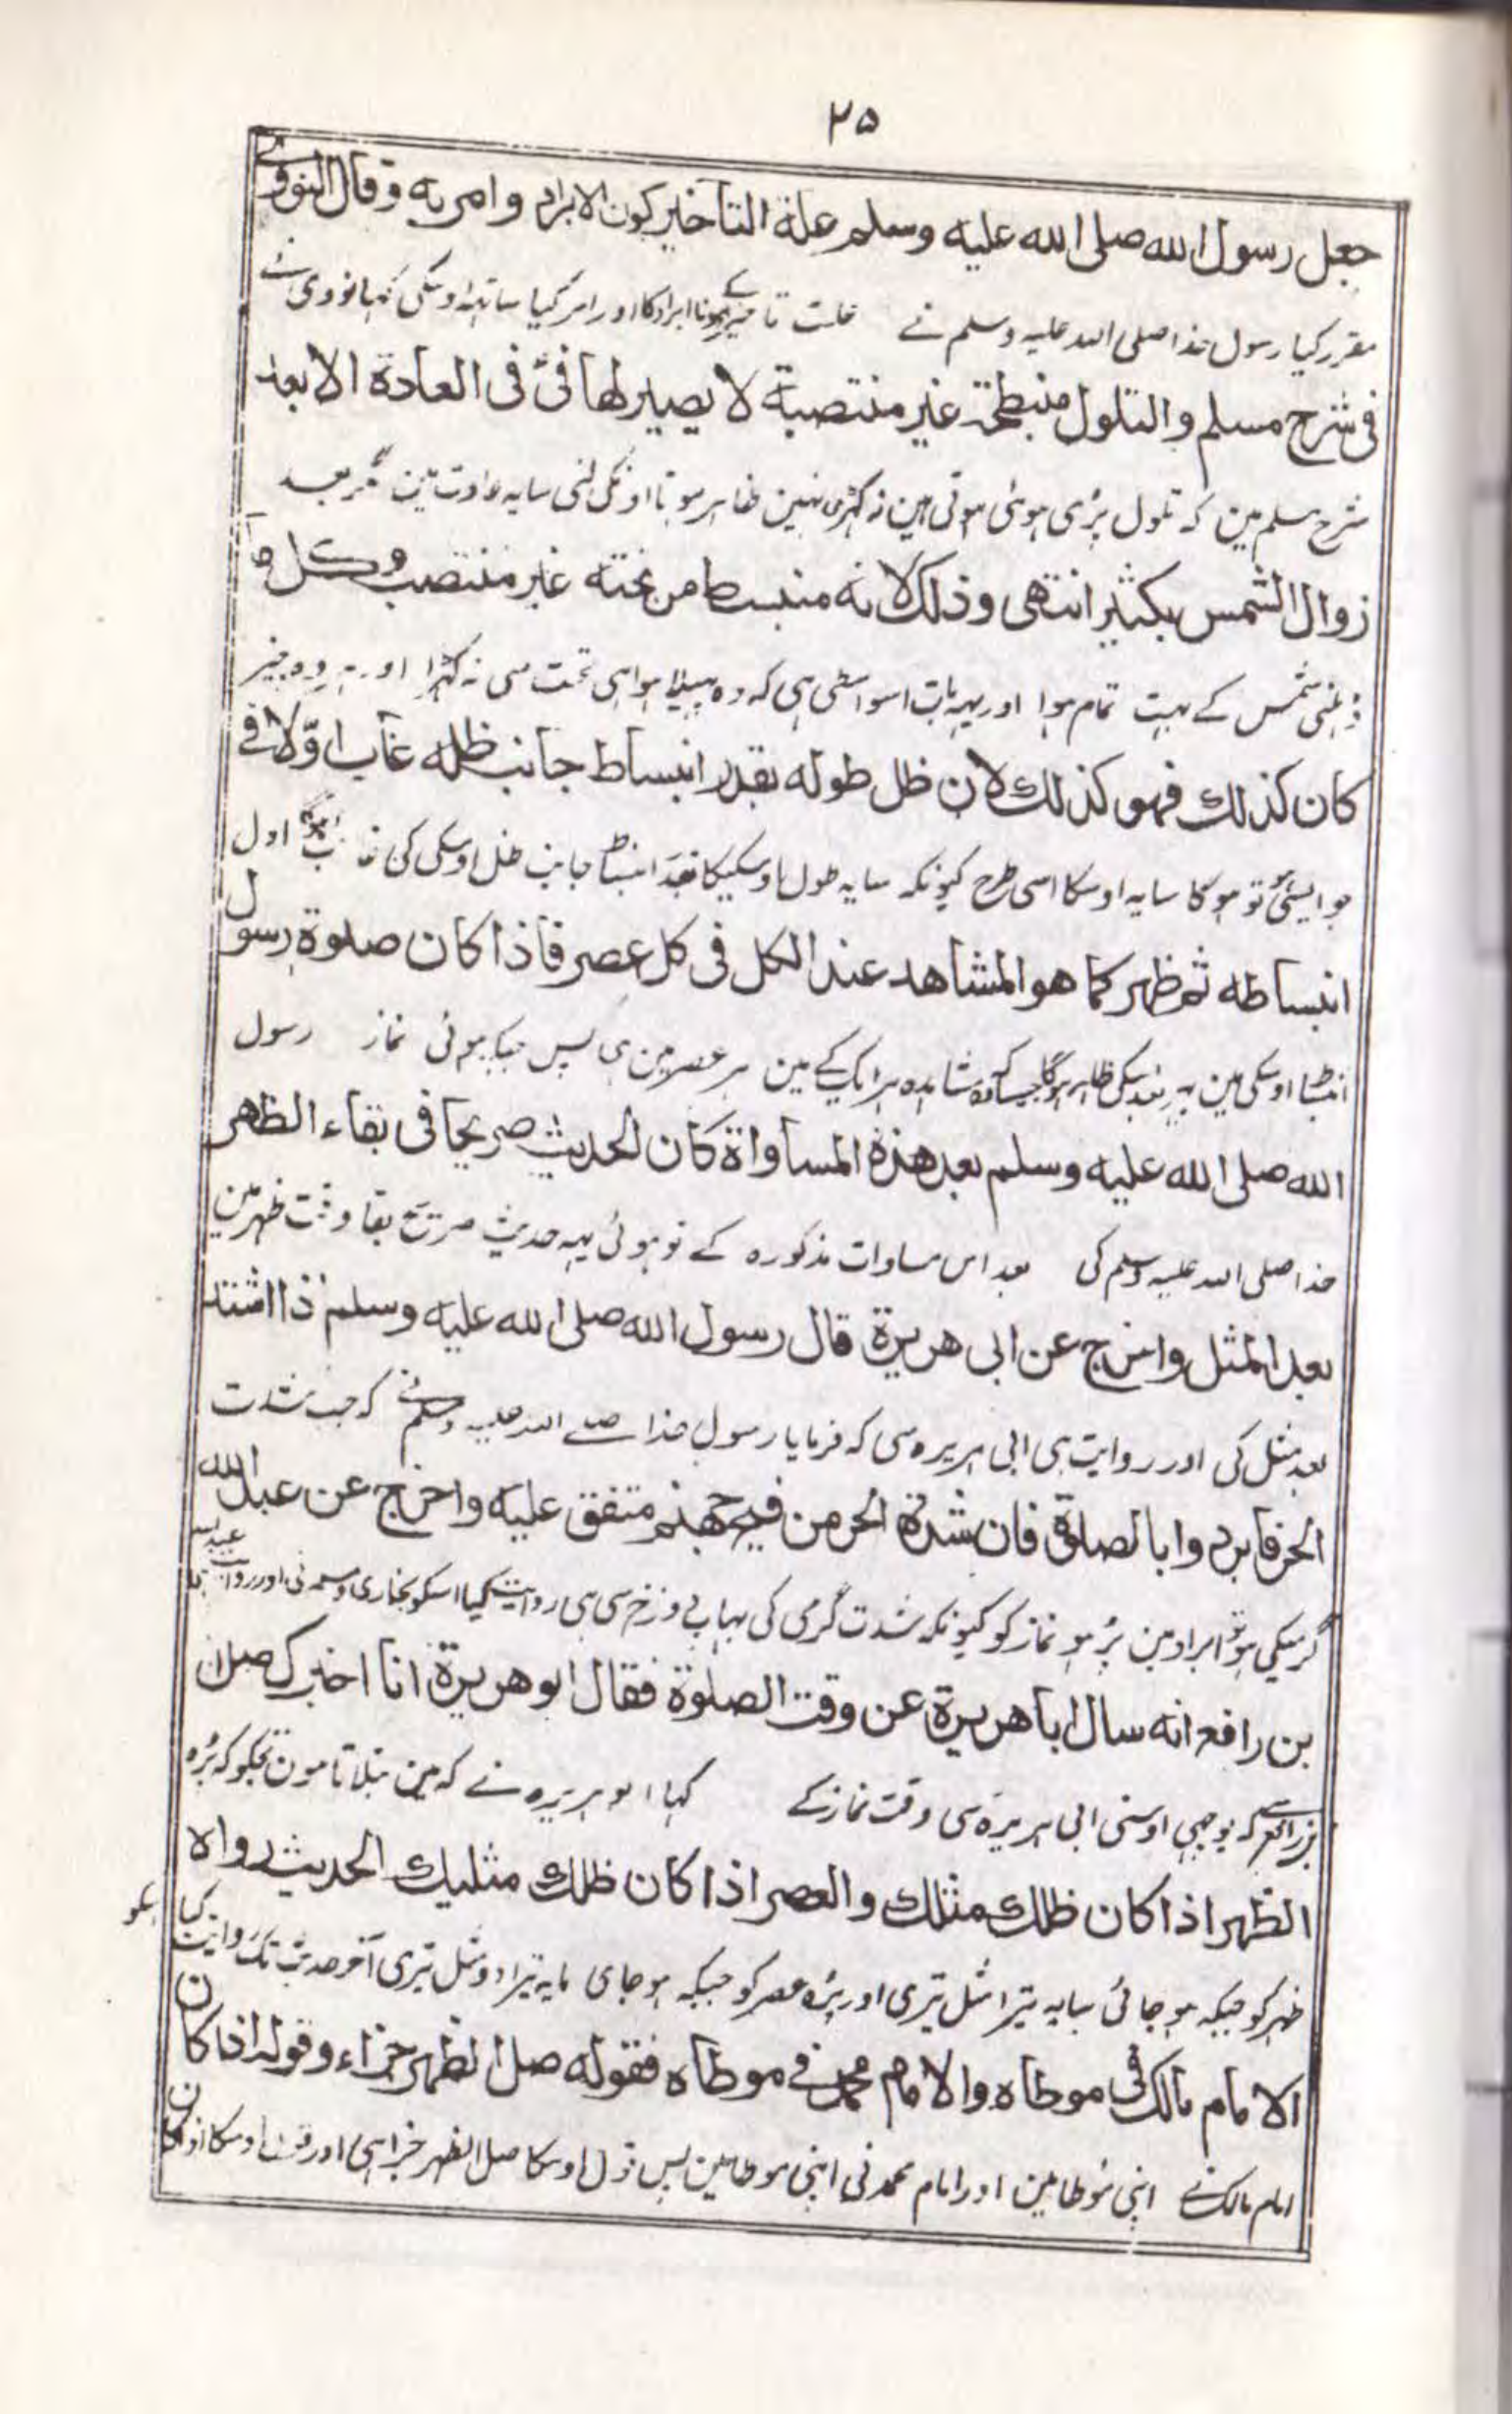 ٢٥
جعل رسول الله صلى الله عليه وسلم علة التاخير كون الابراد وامر به وقال النووي
مقرر کیا رسول خدا صلی اللہ علیہ وسلم نے علت تاخیر کے ہونا ابراد کا اور امر کیا ساتہہ اوسکی کہا نووی نے
فى شرح مسلم والتلول منبطحة غير منتصبة لا يصير لها فئ فى العادة الا بعد
شرح مسلم مین کہ تلول پڑی ہوئی ہوتی ہین نہ کہڑی نہین ظاہر ہوتا اونکی لئی سایہ عادت مین مگر بعد
زوال الشمس بكثير انتهى وذلك لانه منبسط من تحته غير منتصب وكل ما
شمس کے بہت تمام ہوا اور یہہ بات اسواسطی ہی کہ وہ پہیلا ہوا ہی تحت سی نہ کہڑا اور وہ چیز
كان كذلك فهو كذلك لان ظل طوله بقدر انبساط جانب ظله غاب اولا فى
جو ایسی تو ہوگا سایہ اوسکا اسی طرح کیونکہ سایہ طول اوسکیکا بقدر انبساط جانب ظل اوسکی کی اول
انبساطه ثم ظهر كما هو المشاهد عند الكل فى كل عصر فاذا كان صلوة رسول
انبساط اوسکی مین پہر ظاہر ہوگا جیساکہ مشاہدہ ہر ایک کے مین ہر عصر مین ہی پس جبکہ ہوئی نماز رسول
الله صلى الله عليه وسلم بعد هذة المساواة كان الحديث صريحا فى بقاء الظهر
خدا صلی اللہ علیہ وسلم کی بعد اس مساوات مذکورہ کے تو ہوئی یہہ حدیث صریح بقا وقت ظہر مین
بعد المثل واخرج عن ابى هريرة قال رسول الله صلى الله عليه وسلم اذا اشتد
بعد مثل کی اور روایت ہی ابی ہریرہ سی کہ فرمایا رسول خدا صلے اللہ علیہ وسلم نے کہ جب شدت
الحر فابردوا بالصلوة فان شدة الحر من فيح جهنم متفق عليه واخرج عن عبد الله
گرمیکی ہو تو ابراد مین پڑہو نماز کو کیونکہ شدت گرمی کی بہاپ دوزخ سی ہی روایت کیا اسکو بخاری ومسلم نی اور روایت عبد اللہ
بن رافع انه سال ابا هريرة عن وقت الصلوة فقال ابو هريرة انا اخبرك صل
بن رافع سے کہ پوچہی اوسنی ابی ہریرہ سی وقت نماز کے کہا ابو ہریرہ نے کہ مین بتلاتا ہون تجکو کہ پڑہ
الظهر اذا كان ظلك مثلك والعصر اذا كان ظلك مثليك الحديث رواه
ظہر کو جبکہ ہو جائی سایہ تیرا مثل تیری اور پڑہ عصر کو جبکہ ہو جای سایہ تیرا دو مثل تیری آخر حدیث تک روایت کیا اسکو
الامام مالك فى موطاه والامام محمد فى موطاه فقوله صل الظهر جزاء وقوله اذا كان
امام مالک نے اپنی موطا مین اور امام محمد نی اپنی موطا مین پس قول اوسکا صل الظہر جزا ہی اور قول اوسکا اذا کان